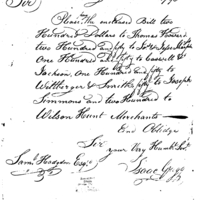 Sir
Please the enclosed Bill two
Hundred Dollars to Thomas
two Hundred and fifty to
One Hundred and fifty to
Jackson, one Hundred and fifty to
Weltberger & Smith fifty to Joseph
Simmons and two Hundred to
Wilson Hunt Merchants
And Oblidge
Sir
your Very Humble Sert
Saml Hodgdon Esqr
Isaac